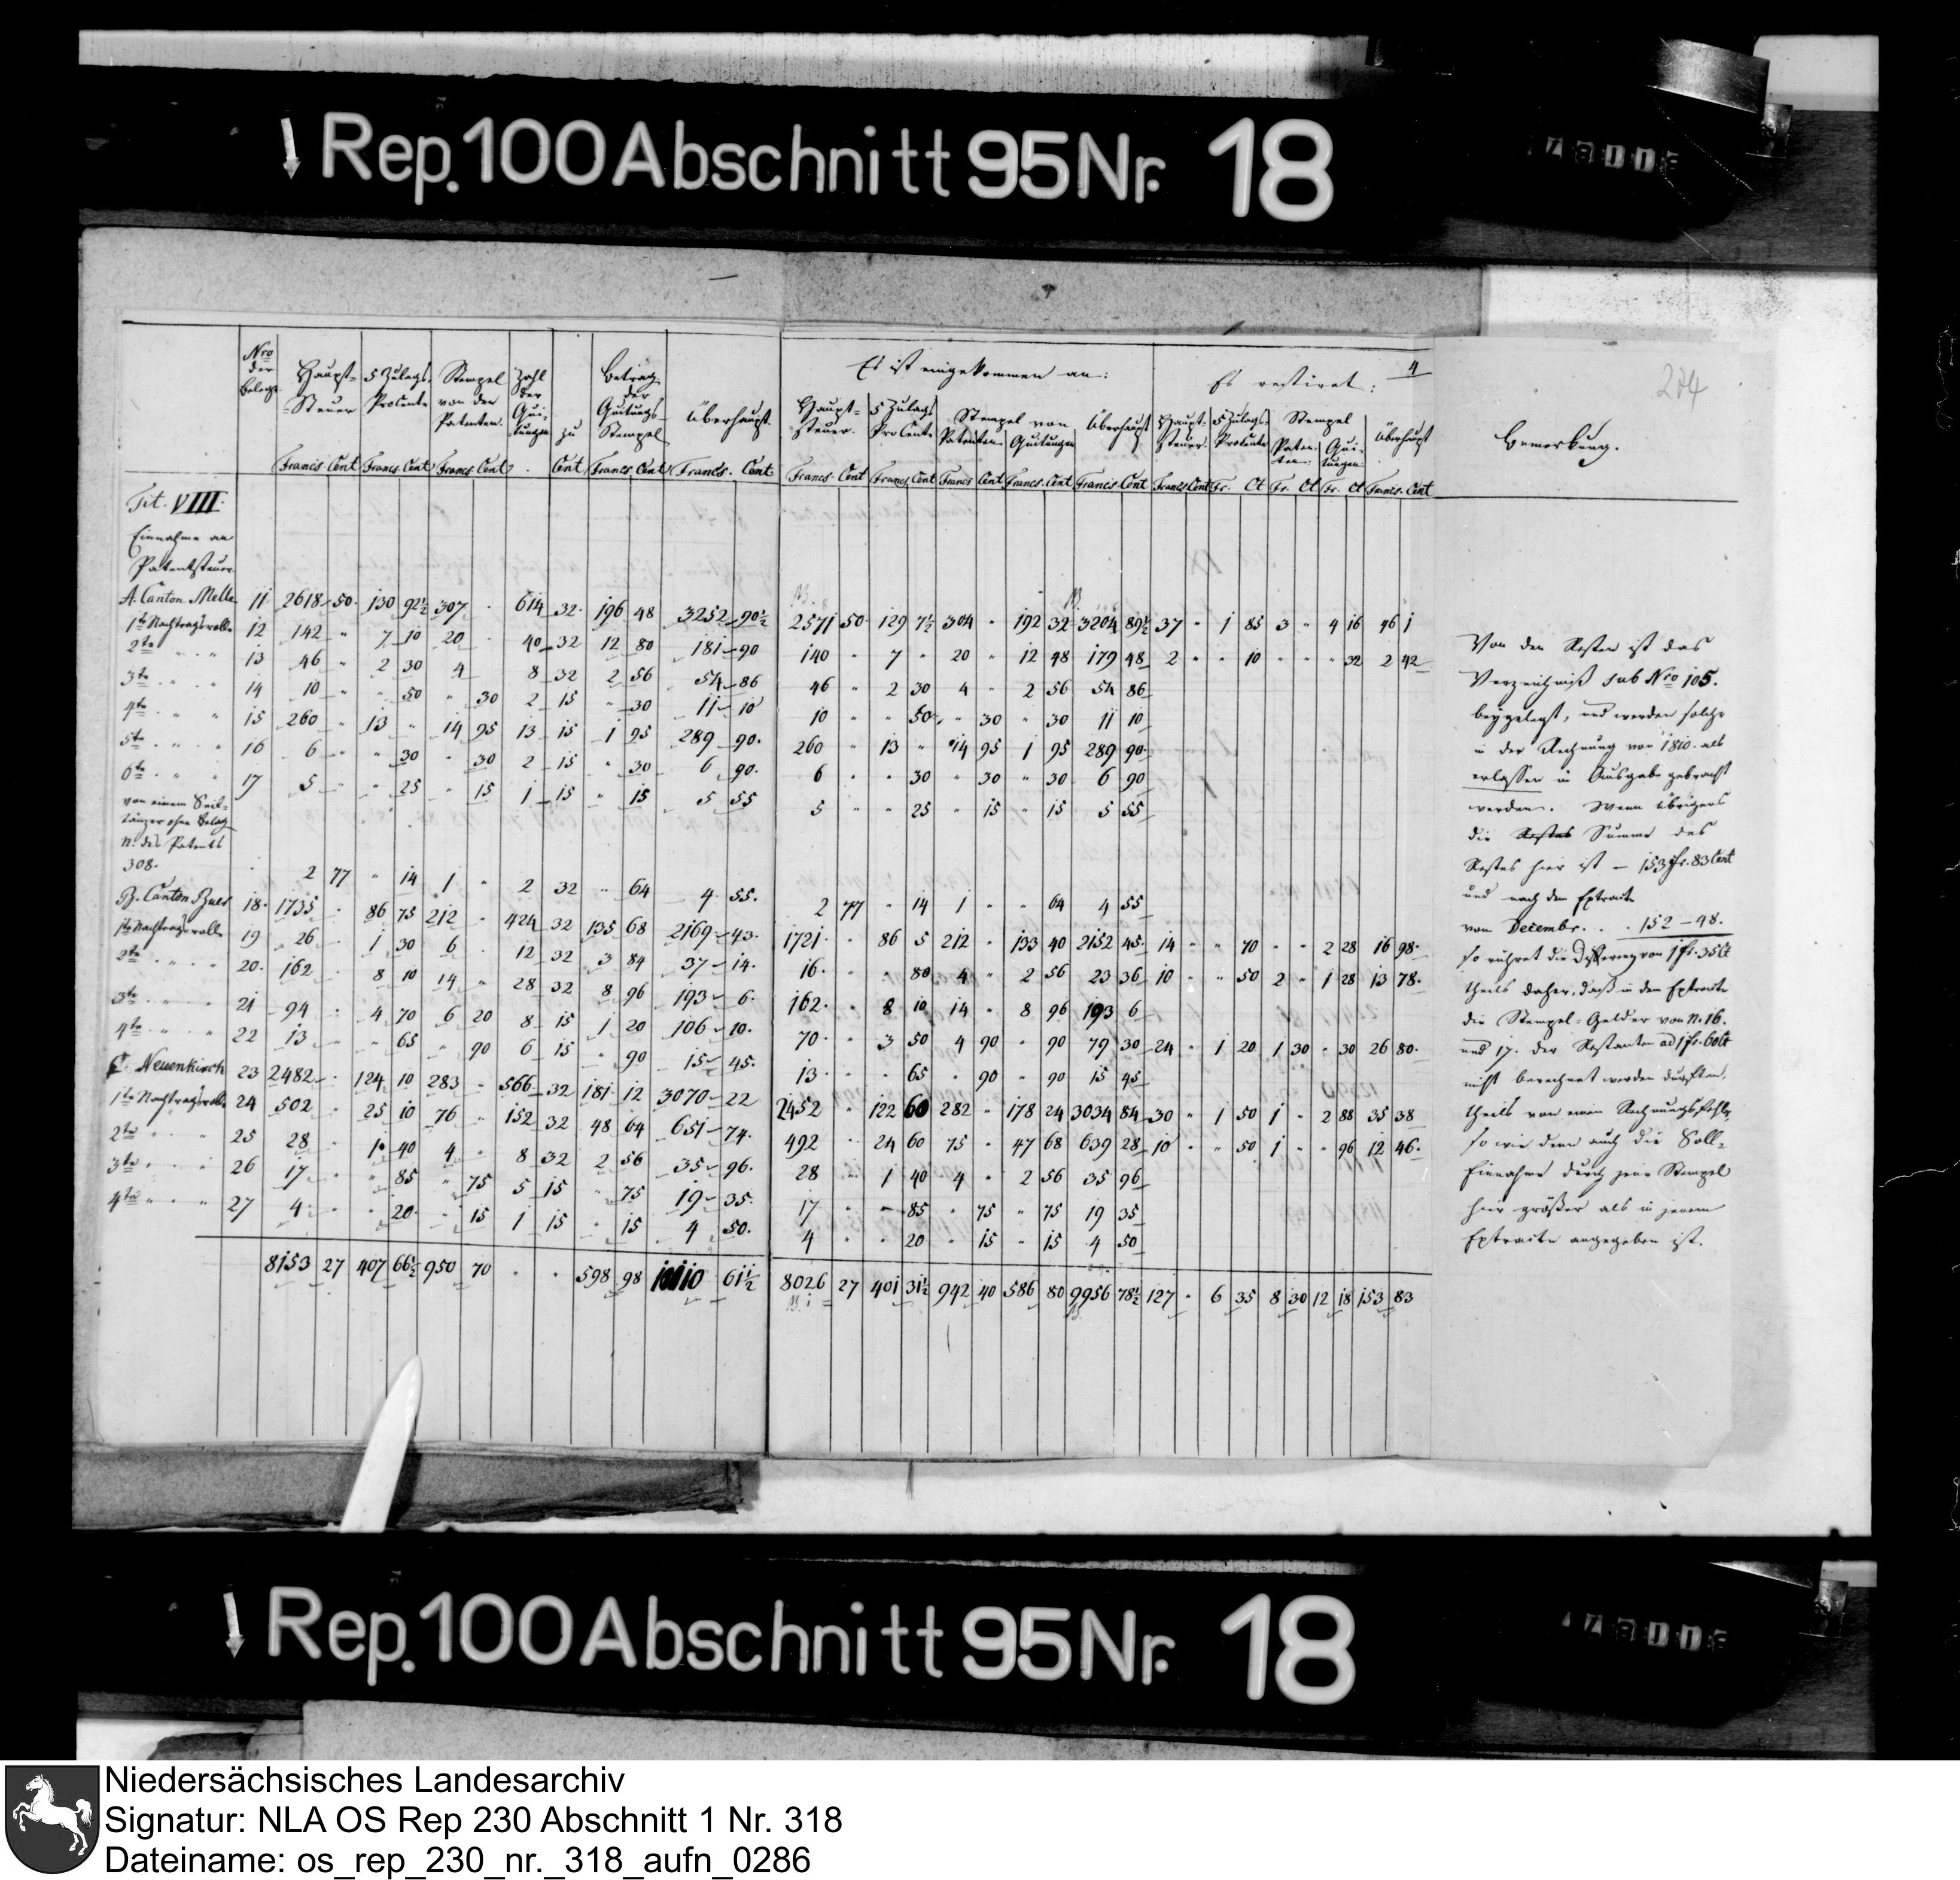 ↓ Rep. 100 Abschnitt 95 Nr. 18
4
274
Nro der Belege
Haupt-Steuer
5 Zulags-Procente
Stempel von den Patenten.
Zahl der Quitungen
zu
Betrag der Quitungs-Stempel
Überhaupt.
Es ist eingekommen an:
Haupt-steuer.
5 Zulags ProCente
Stempel von
Patenten Quitungen
Überhaupt
Es restiret:
Haupt-steuer.
5 Zulags-Procente
Stempel
Paten-ten. Qui-tungen
Überhaupt
Bemerkung.
Francs Cent Francs Cent Francs Cent Cent Francs Cent Francs. Cent
Francs. Cent Francs Cent Francs Cent Francs. Cent Francs Cent Francs Cent Fr. Ct Fr. Ct Fr. Ct Francs. Cent
Tit. VIII.
Einnahme an
Patentsteuer.
A. Canton Melle 11 2618 50. 130 92½ 307 614 32. 196 48 3252 90½ 2571 50 129 7½ 304 " 192 32 3204 89½ 37 " 1 85 3 " 4 16 46 1
1te Nachtragsrolle 12 142 " 7 10 20 40 32 12 80 181 90 140 " 7 " 20 " 12 48 179 48 2 " " 10 " " " 32 2 42
2te " " " 13 46 " 2 30 4 8 32 2 56 54 86 46 " 2 30 4 " 2 56 54 86
3te " " " 14 10 " " 50 " 30 2 15 " 30 11 10 10 " " 50 " 30 " 30 11 10
4te " " " 15 260 " 13 " 14 95 13 15 1 95 289 90. 260 " 13 " 14 95 1 95 289 90
5te " " " 16 6 " " 30 " 30 2 15 " 30 6 90. 6 " " 30 " 30 " 30 6 90
6te " " " 17 5 " " 25 " 15 1 15 " 15 5 55 5 " " 25 " 15 " 15 5 55
von einem Seil-
tänzer ohne Beleg
N. des Patents
308. 2 77 " 14 1 " 2 32 " 64 4 55. 2 77 " 14 1 " " 64 4 55
B. Canton Buer 18. 1735 " 86 75 212 " 424 32 135 68 2169 43. 1721 " 86 5 212 " 133 40 2152 45. 14 " " 70 " " 2 28 16 98.
1te Nachtragsrolle 19 26 " 1 30 6 " 12 32 3 84 37 14. 16. " " 80 4 " 2 56 23 36 10 " " 50 2 " 1 28 13 78.
2te " " " 20. 162 " 8 10 14 " 28 32 8 96 193 6. 162. " 8 10 14 " 8 96 193 6
3te " " " 21 94 " 4 70 6 20 8 15 1 20 106 10. 70. " 3 50 4 90 " 90 79 30 24 " 1 20 1 30 " 30 26 80.
4te " " " 22 13 " " 65 " 90 6 15 " 90 15 45. 13 " " 65 " 90 " 90 15 45
C. Neuenkirch 23 2482 " 124 10 283 " 566 32 181 12 3070 22 2452 " 122 60 282 " 178 24 3034 84 30 " 1 50 1 " 2 88 35 38
1te Nachtragsrolle 24 502 " 25 10 76 " 152 32 48 64 651 74. 492 " 24 60 75 " 47 68 639 28 10 " " 50 1 " " 96 12 46.
2te " " " 25 28 " 1 40 4 " 8 32 2 56 35 96. 28 " 1 40 4 " 2 56 35 96
3te " " " 26 17 " " 85 " 75 5 15 " 75 19 35. 17 " " 85 " 75 " 75 19 35
4te " " " 27 4 " " 20 " 15 1 15 " 15 4 50. 4 " " 20 " 15 " 15 4 50
8153 27 407 66½ 950 70 " " 598 98 10110 61½ 8026 27 401 31½ 942 40 586 80 9956 78½ 127 " 6 35 8 30 12 18 153 83
Von den Resten ist das
Verzeichniß sub Nro 105.
beygelegt, und werden solche
in der Rechnung von 1810. als
erlassen in Ausgabe gebracht
werden. Wenn übrigens
die Restes Summe des
Restes hier ist – 153 fr. 83 Cent
und nach dem Extracte
von Decembr. . . 152 – 48.
so rühret die Differenz von 1 fr. 35 Ct
theils daher, daß in dem Extracte
die Stempel-Gelder von N. 16.
und 17. der Restanten ad 1 fr. 60 Ct
nicht berechnet werden durften,
theils von einem Rechnungsfehler
so wie denn auch die Soll-
Einnahme durch jene Stempel
hier größer als in jenem
Extracte angegeben ist.
↓ Rep. 100 Abschnitt 95 Nr. 18
Niedersächsisches Landesarchiv
Signatur: NLA OS Rep 230 Abschnitt 1 Nr. 318
Dateiname: os_rep_230_nr._318_aufn_0286